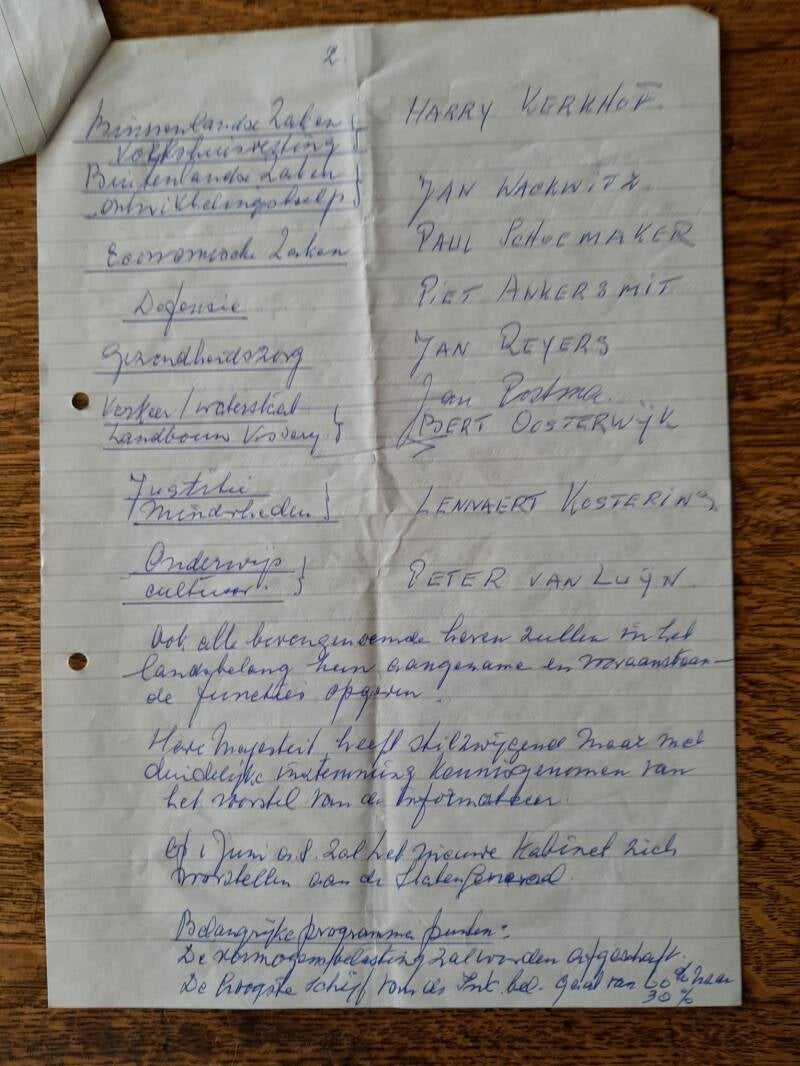 2.
Binnenlandse Zaken } HARRY KERKHOF
Volkshuisvesting
Buitenlandse Zaken } JAN WACKWITZ
ontwikkelingshulp
Economische Zaken PAUL SCHOEMAKER
Defensie PIET ANKERSMIT
Gezondheidszorg JAN REYERS
Verkeer/waterstaat } Jan Postma.
Landbouw Visserij BERT OOSTERWIJK
Justitie } LENNAERT KOSTERING
Minderheden
Onderwijs } PETER VAN LUIJN
cultuur.
Ook alle bovengenoemde heren zullen in het
landsbelang hun aangename en vooraanstaan-
de functies opgeven.
Hare Majesteit heeft stilzwijgend maar met
duidelijke instemming kennisgenomen van
het voorstel van de informateur.
Op 1 Juni a.s. zal het nieuwe Kabinet zich
voorstellen aan de Staten Generaal.
Belangrijke programma punten:
De vermogensbelasting zal worden afgeschaft.
De hoogste schijf van de Ink. bel. gaat van 60% naar
30%